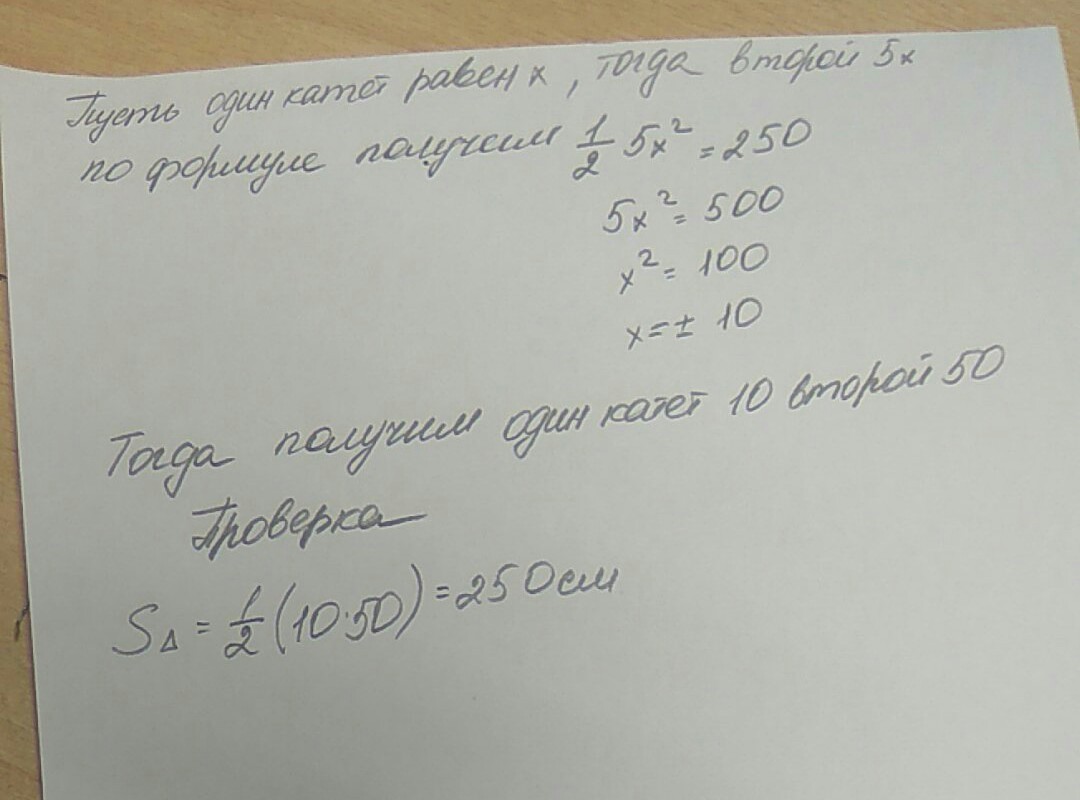 Пусть один катет равен x, тогда второй 5x
по формуле получим 1/2 5x² = 250
5x² = 500
x² = 100
x = ± 10
Тогда получим один катет 10 второй 50
Проверка
S△ = 1/2 (10·50) = 250 см